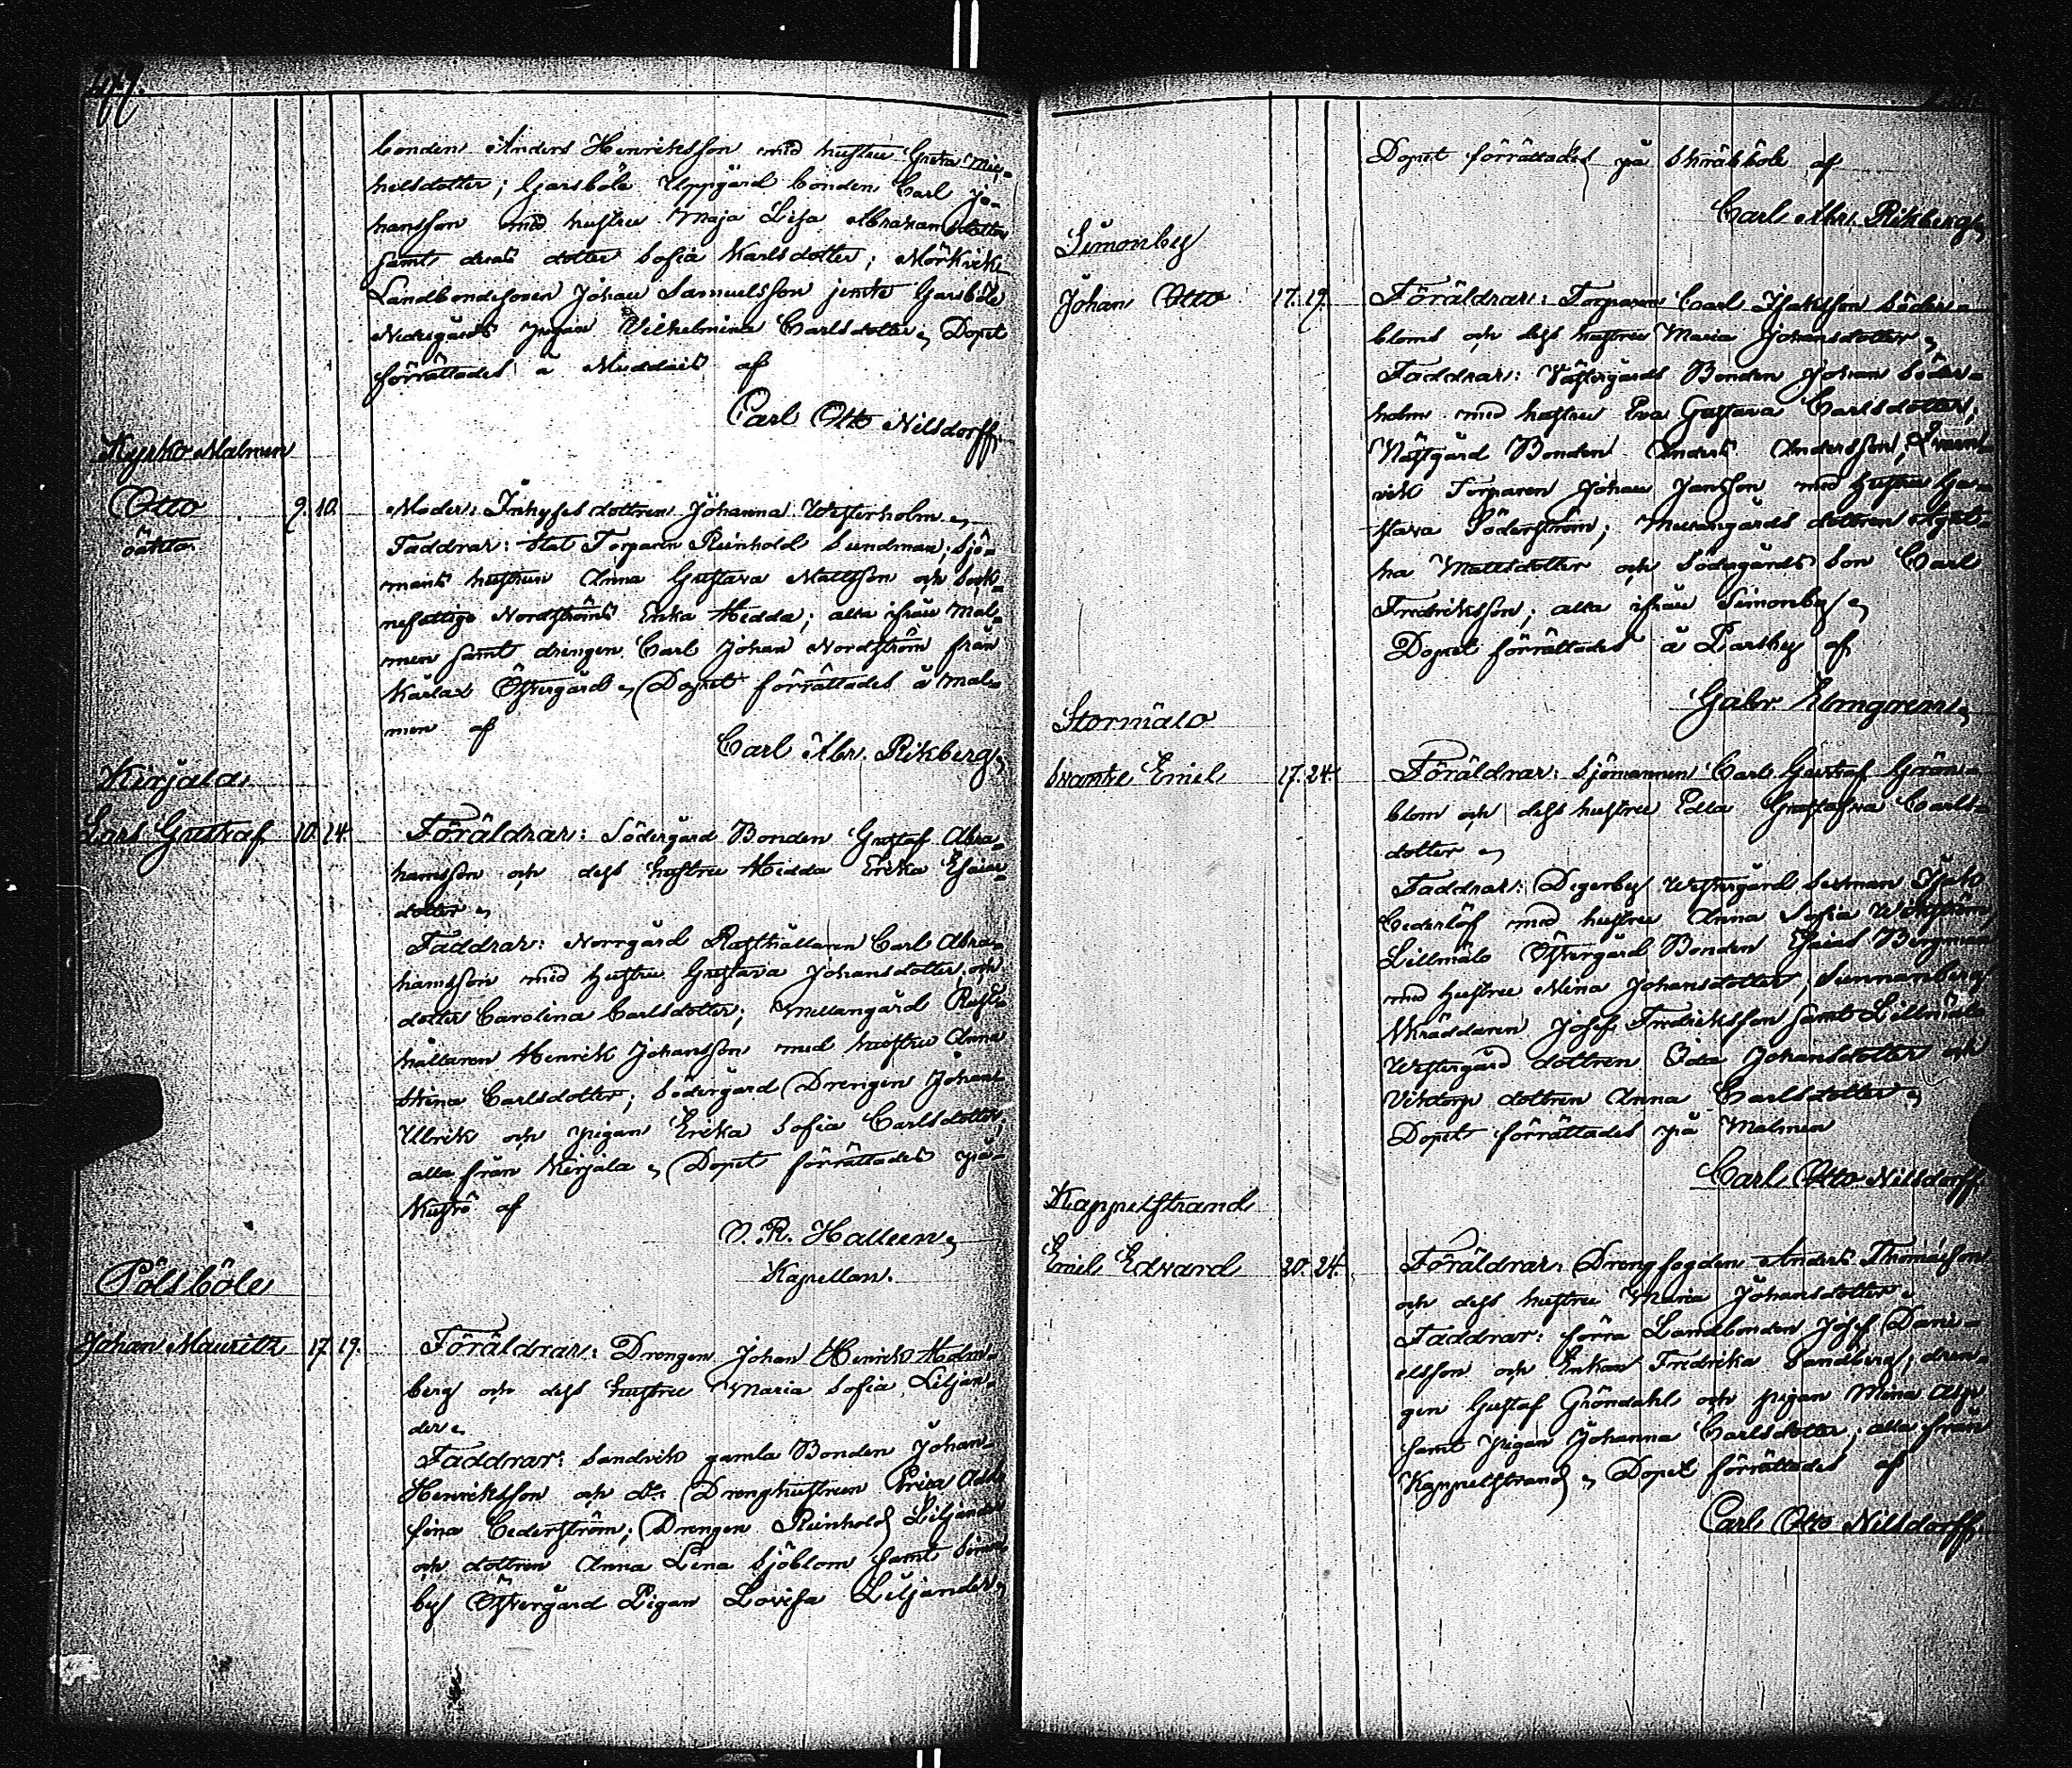 bonden Anders Henriksson med hustru Greta Mic-
helsdotter; Garsböle Uppgård bonden Carl Jo-
hansson med hustru Maja Lisa Abrahamsdotter
samt deras dotter Sofia Karlsdotter; Mörkvik
Landbondesonen Johan Samuelsson jemte Garsböle
Nedergårds pigan Vilhelmina Carlsdotter. Dopet
förrättades å Muddais af
Carl Otto Nilsdorff.
Kyrko Malmen
Otto 9. 10. Moder: Inhyses dottren Johanna Westerholm.
oäkta. Faddrar: Stat Torparen Reinhold Sundman; Sjö-
mans hustrun Anna Gustava Mattsson och Sock-
nefattige Nordströms Enka Hedda; alla ifrån Mal-
men samt drengen Carl Johan Nordström från
Kärlax Östergård. Dopet förrättades å Mal-
men af
Carl Abr. Rikberg.
Kirjala
Lars Gustaf. 10. 24. Föräldrar: Södergård Bonden Gustaf Abra-
hamsson och dess hustru Hedda Erika Esaias-
dotter.
Faddrar: Norrgård Rusthållaren Carl Abra-
hamsson med hustru Gustava Johansdotter och
dotter Carolina Carlsdotter; Mellangård Rust-
hållaren Henrik Johansson med hustru Anna
Stina Carlsdotter; Södergård Drengen Johan
Ulrik och pigan Erika Sofia Carlsdotter,
alla från Kirjala. Dopet förrättades på
Kustö af
O. R. Halleen,
Kapellan.
Pölsböle
Johan Mauritz 17. 19. Föräldrar: Drengen Johan Henrik Holm-
berg och dess hustru Maria Sofia Liljan-
der.
Faddrar: Sandvik gamla Bonden Johan
Henriksson och d:o Drenghustrun Erica Adol-
fina Cederström; Drengen Reinhold Liljander
och dottren Anna Lena Sjöblom samt Simon-
by Östergård Pigan Lovisa Liljander.
Dopet förrättades på Skräbböle af
Carl Abr. Rikberg.
Simonby
Johan Otto 17. 19. Föräldrar: Torparen Carl Isaksson Söder-
blom och dess hustru Maria Johansdotter.
Faddrar: Västergårds Bonden Johan Söder-
holm med hustru Eva Gustava Carlsdotter;
Nästgård Bonden Anders Andersson;
vik Torparen Johan Jansson med hustru Gu-
stava Söderström; Mellangårds dottren Agat-
ha Mattsdotter och Södergårds Son Carl
Fredriksson; alla ifrån Simonby.
Dopet förrättades å Parsby af
Gabr Elmgren.
Stormälö
Svante Emil 17. 24. Föräldrar: Sjömannen Carl Gustaf Grön-
blom och dess hustru Edla Gustafva Carls-
dotter.
Faddrar: Degerby Westergård Sexman Isak
Cederlöf med hustru Anna Sofia Wikström,
Lillmälö Östergård Bonden Esaias Bergman
med hustru Mina Johansdotter, Sunnanberg
Skräddaren Josef Fredriksson samt Lillmälö
Westergård dottren Ida Johansdotter och
Vikdorp dottren Anna Carlsdotter.
Dopet förrättades på Malmen
Carl Otto Nilsdorff.
Kappelstrand
Emil Edvard 20. 24. Föräldrar: Drengfogden Anders Thomasson
och dess hustru Maria Johansdotter.
Faddrar: förra Landbonden Josef Dani-
elsson och Enkan Fredrika Sandberg; dren-
gen Gustaf Gröndahl och pigan Mina Alm
samt pigan Johanna Carlsdotter; alla från
Kappelstrand. Dopet förrättades af
Carl Otto Nilsdorff.